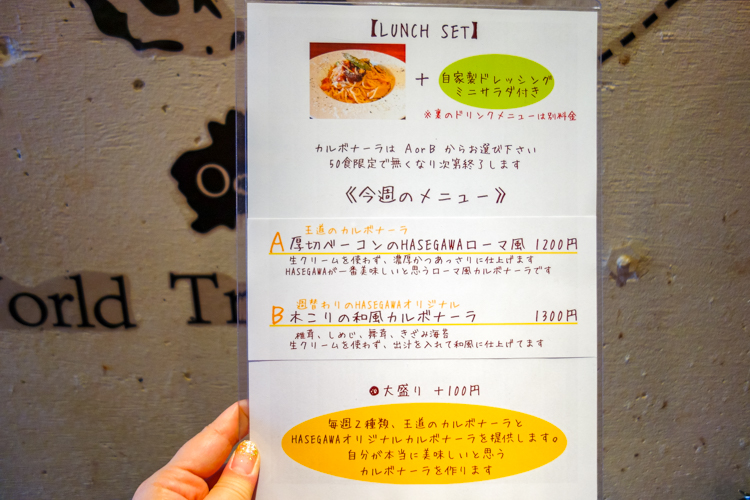 【LUNCH SET】
+
自家製ドレッシング
ミニサラダ付き
※裏のドリンクメニューは別料金
カルボナーラは AorB からお選び下さい
50食限定で無くなり次第終了します
《今週のメニュー》
王道のカルボナーラ
A 厚切ベーコンのHASEGAWAローマ風 1200円
生クリームを使わず、濃厚かつあっさりに仕上げます
HASEGAWAが一番美味しいと思うローマ風カルボナーラです
週替わりのHASEGAWAオリジナル
B 木こりの和風カルボナーラ 1300円
椎茸、しめじ、舞茸、きざみ海苔
生クリームを使わず、出汁を入れて和風に仕上げてます
大盛り +100円
毎週2種類、王道のカルボナーラと
HASEGAWAオリジナルカルボナーラを提供します。
自分が本当に美味しいと思う
カルボナーラを作ります
Oc
orld Tr